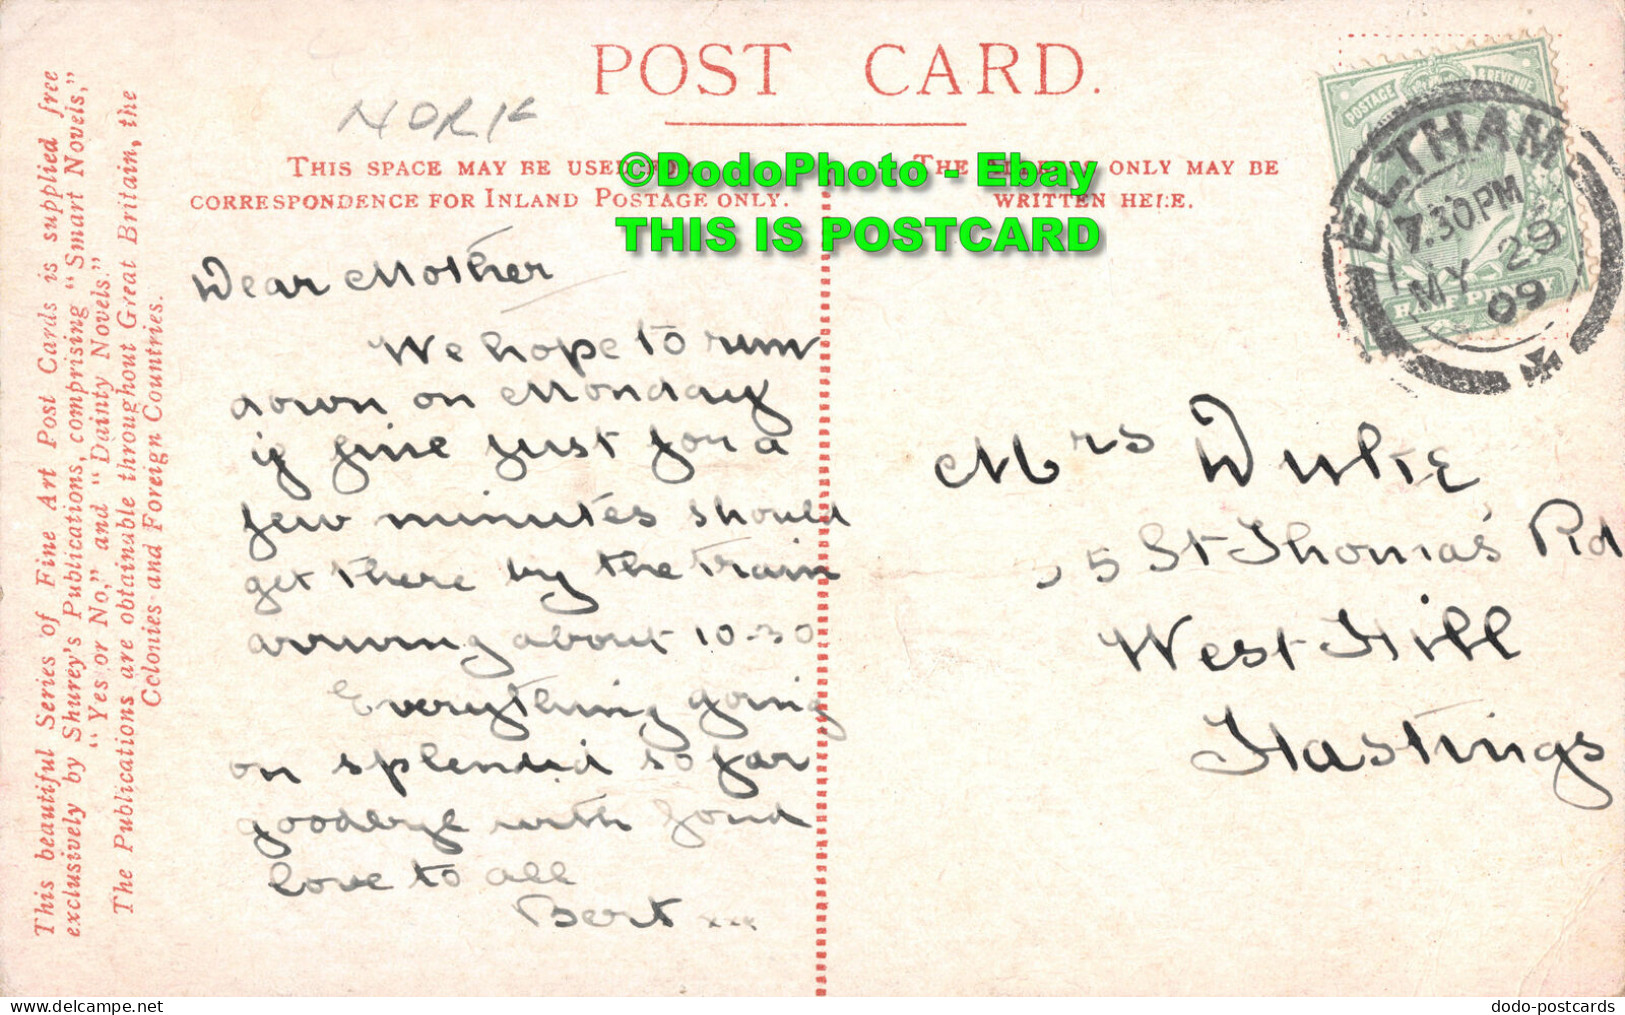 POST CARD.
NORK
THIS SPACE MAY BE USED FOR
CORRESPONDENCE FOR INLAND POSTAGE ONLY.
THE ADDRESS ONLY MAY BE
WRITTEN HERE.
©DodoPhoto - Ebay
THIS IS POSTCARD
This beautiful Series of Fine Art Post Cards is supplied free
exclusively by Shurey's Publications, comprising "Smart Novels,"
"Yes or No," and "Dainty Novels."
The Publications are obtainable throughout Great Britain, the
Colonies and Foreign Countries.
Dear Mother
We hope to run
down on Monday
if fine just for a
few minutes should
get there by the train
arriving about 10-30
Everything going
on splendid so far
goodbye with fond
love to all
Bert xxx
POSTAGE & REVENUE
HALF PENNY
ELTHAM
7.30 PM
MY 29
09
Mrs Duke
35 St Thomas' Rd
West Hill
Hastings
www.delcampe.net
dodo-postcards